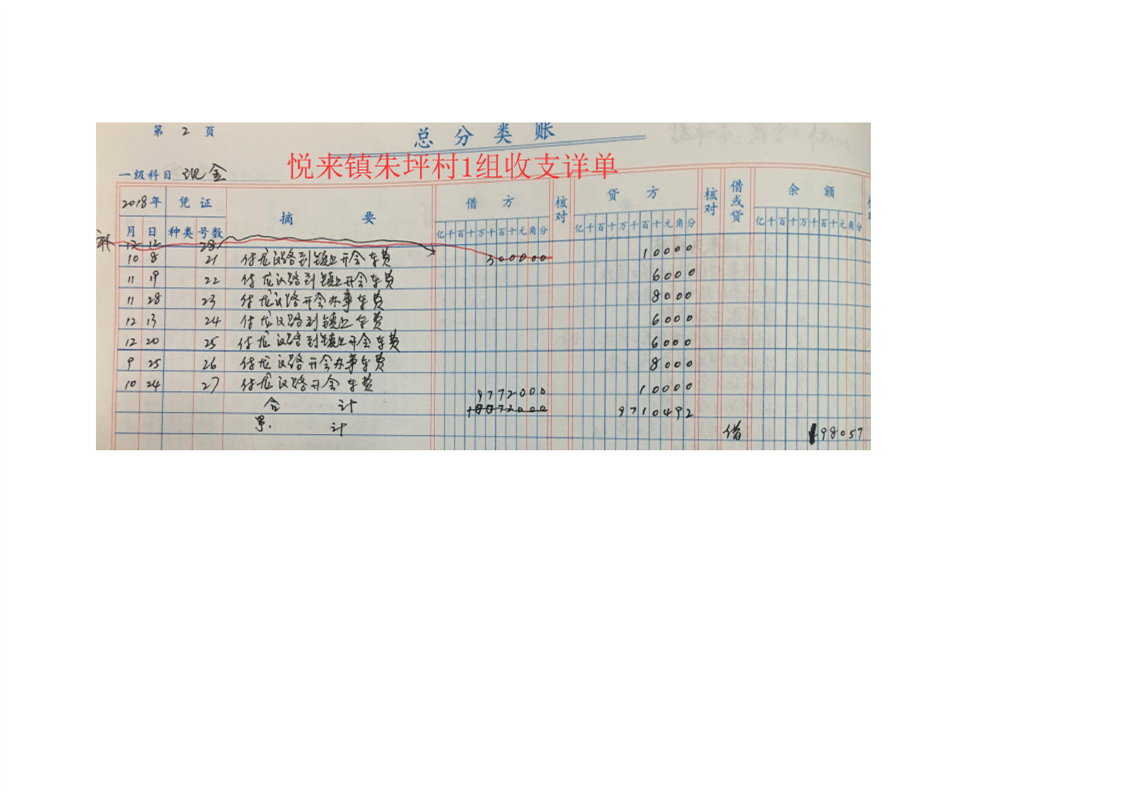 第 2 页
总分类账
悦来镇朱坪村1组收支详单
一级科目 现金
2018年 凭证 摘要 借方 核对 贷方 核对 借或贷 余额
月 日 种类 号数 亿千百十万千百十元角分 亿千百十万千百十元角分 亿千百十万千百十元角分
12 12 28
10 8 21 付龙议路到镇上开会车费 500000 10000
11 19 22 付龙议路到镇上开会车费 6000
11 28 23 付龙议路开会办事车费 8000
12 13 24 付龙议路到镇上车费 6000
12 20 25 付龙议路到镇上开会车费 6000
9 25 26 付龙议路开会办事车费 8000
10 24 27 付龙议路开会车费 10000
合计 9772000 9710492
累计 借 98057